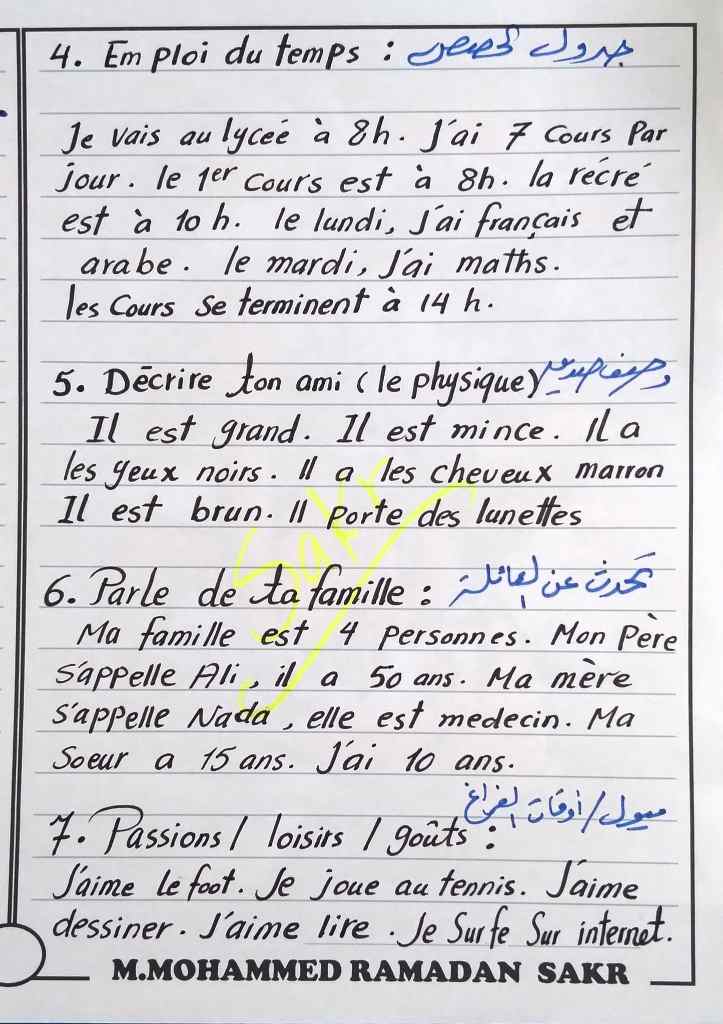 4. Emploi du temps : جدول الحصص
Je vais au lyceé à 8h. J'ai 7 cours par
jour. le 1er cours est à 8h. la récré
est à 10 h. le lundi, J'ai français et
arabe. le mardi, J'ai maths.
les cours se terminent à 14 h.
5. Décrire ton ami (le physique) وصف صديق
Il est grand. Il est mince. Il a
les yeux noirs. Il a les cheveux marron
Il est brun. Il porte des lunettes
Sakr
6. Parle de ta famille : تحدث عن العائلة
Ma famille est 4 personnes. Mon Père
s'appelle Ali, il a 50 ans. Ma mère
s'appelle Nada, elle est medecin. Ma
Soeur a 15 ans. J'ai 10 ans.
7. Passions / loisirs / goûts : ميول / أوقات الفراغ
J'aime le foot. Je joue au tennis. J'aime
dessiner. J'aime lire. Je surfe sur internet.
M.MOHAMMED RAMADAN SAKR